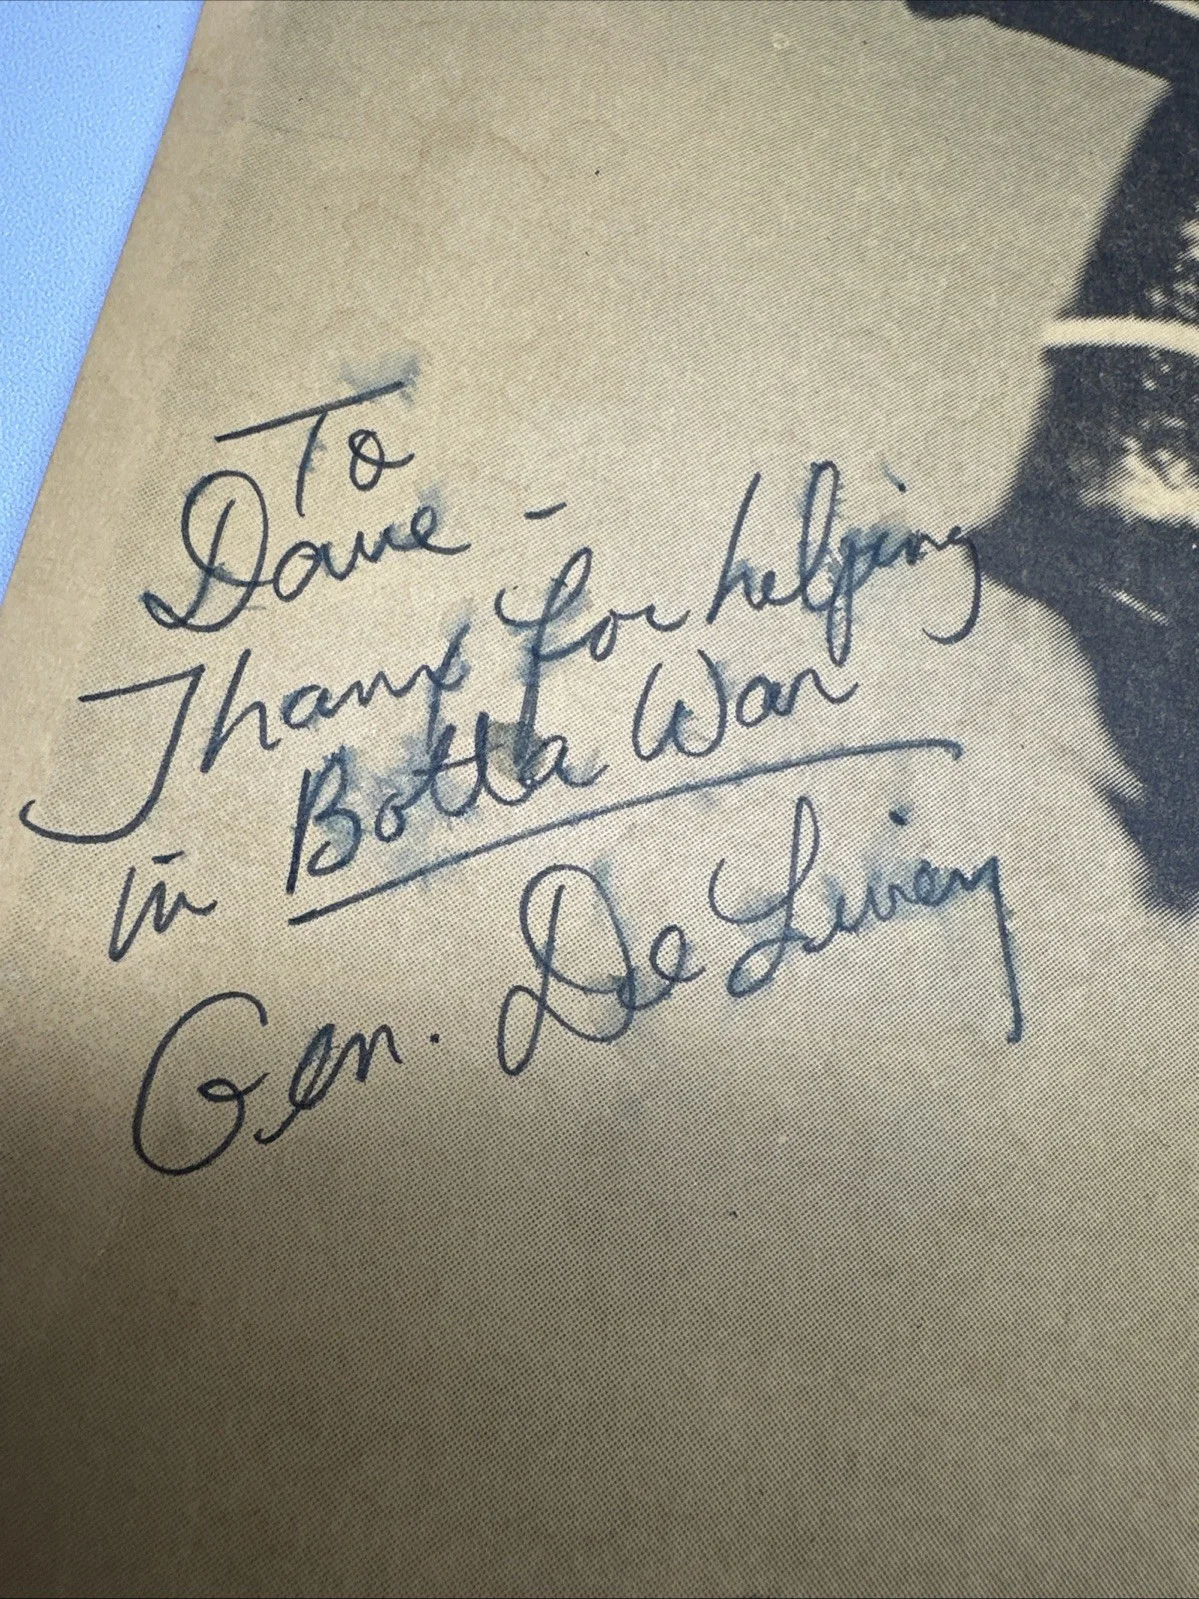 To
Dave -
Thanx for helping
in Botta War
Gen. De Livery